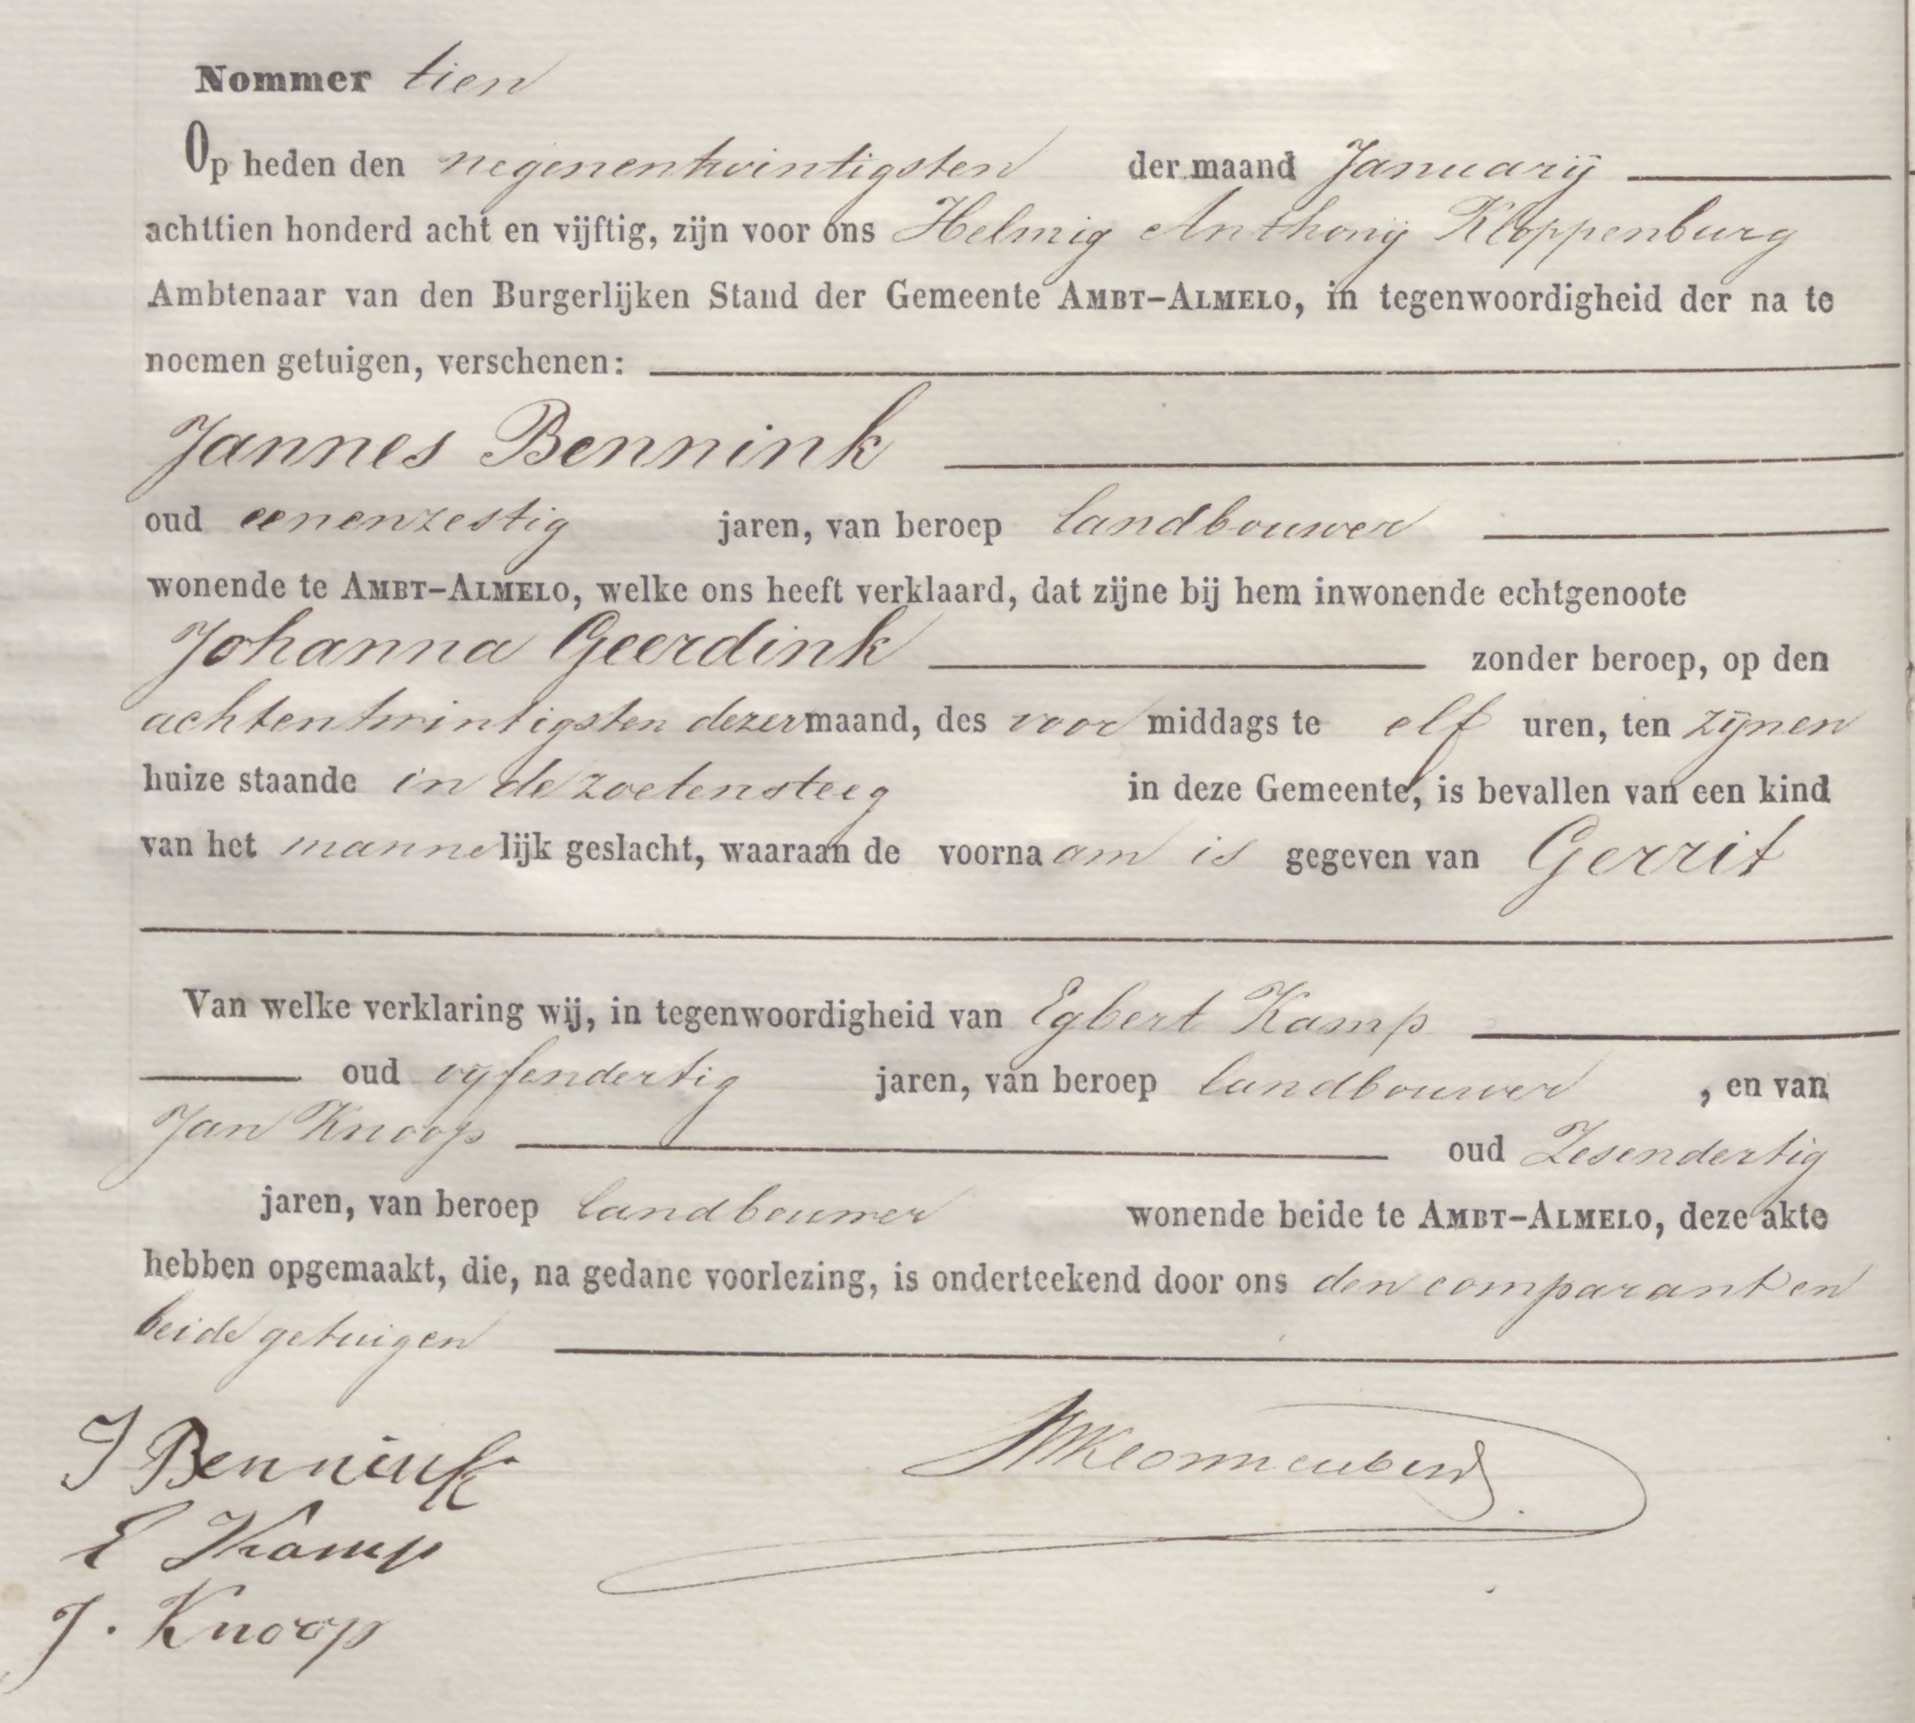 Nommer tien
Op heden den negenentwintigsten der maand Januarij
achttien honderd acht en vijftig, zijn voor ons Helmig Anthonij Kloppenburg
Ambtenaar van den Burgerlijken Stand der Gemeente AMBT-ALMELO, in tegenwoordigheid der na te
noemen getuigen, verschenen:
Jannes Bennink
oud eenenzestig jaren, van beroep landbouwer
wonende te AMBT-ALMELO, welke ons heeft verklaard, dat zijne bij hem inwonende echtgenoote
Johanna Geerdink zonder beroep, op den
achtentwintigsten dezer maand, des voor middags te elf uren, ten zijnen
huize staande in de zoetensteeg in deze Gemeente, is bevallen van een kind
van het mannelijk geslacht, waaraan de voornaam is gegeven van Gerrit
Van welke verklaring wij, in tegenwoordigheid van Egbert Kamp
oud vijfendertig jaren, van beroep landbouwer , en van
Jan Knoop oud Zesendertig
jaren, van beroep landbouwer wonende beide te AMBT-ALMELO, deze akte
hebben opgemaakt, die, na gedane voorlezing, is onderteekend door ons den comparant en
beide getuigen
J Bennink
E Kamp
J. Knoop